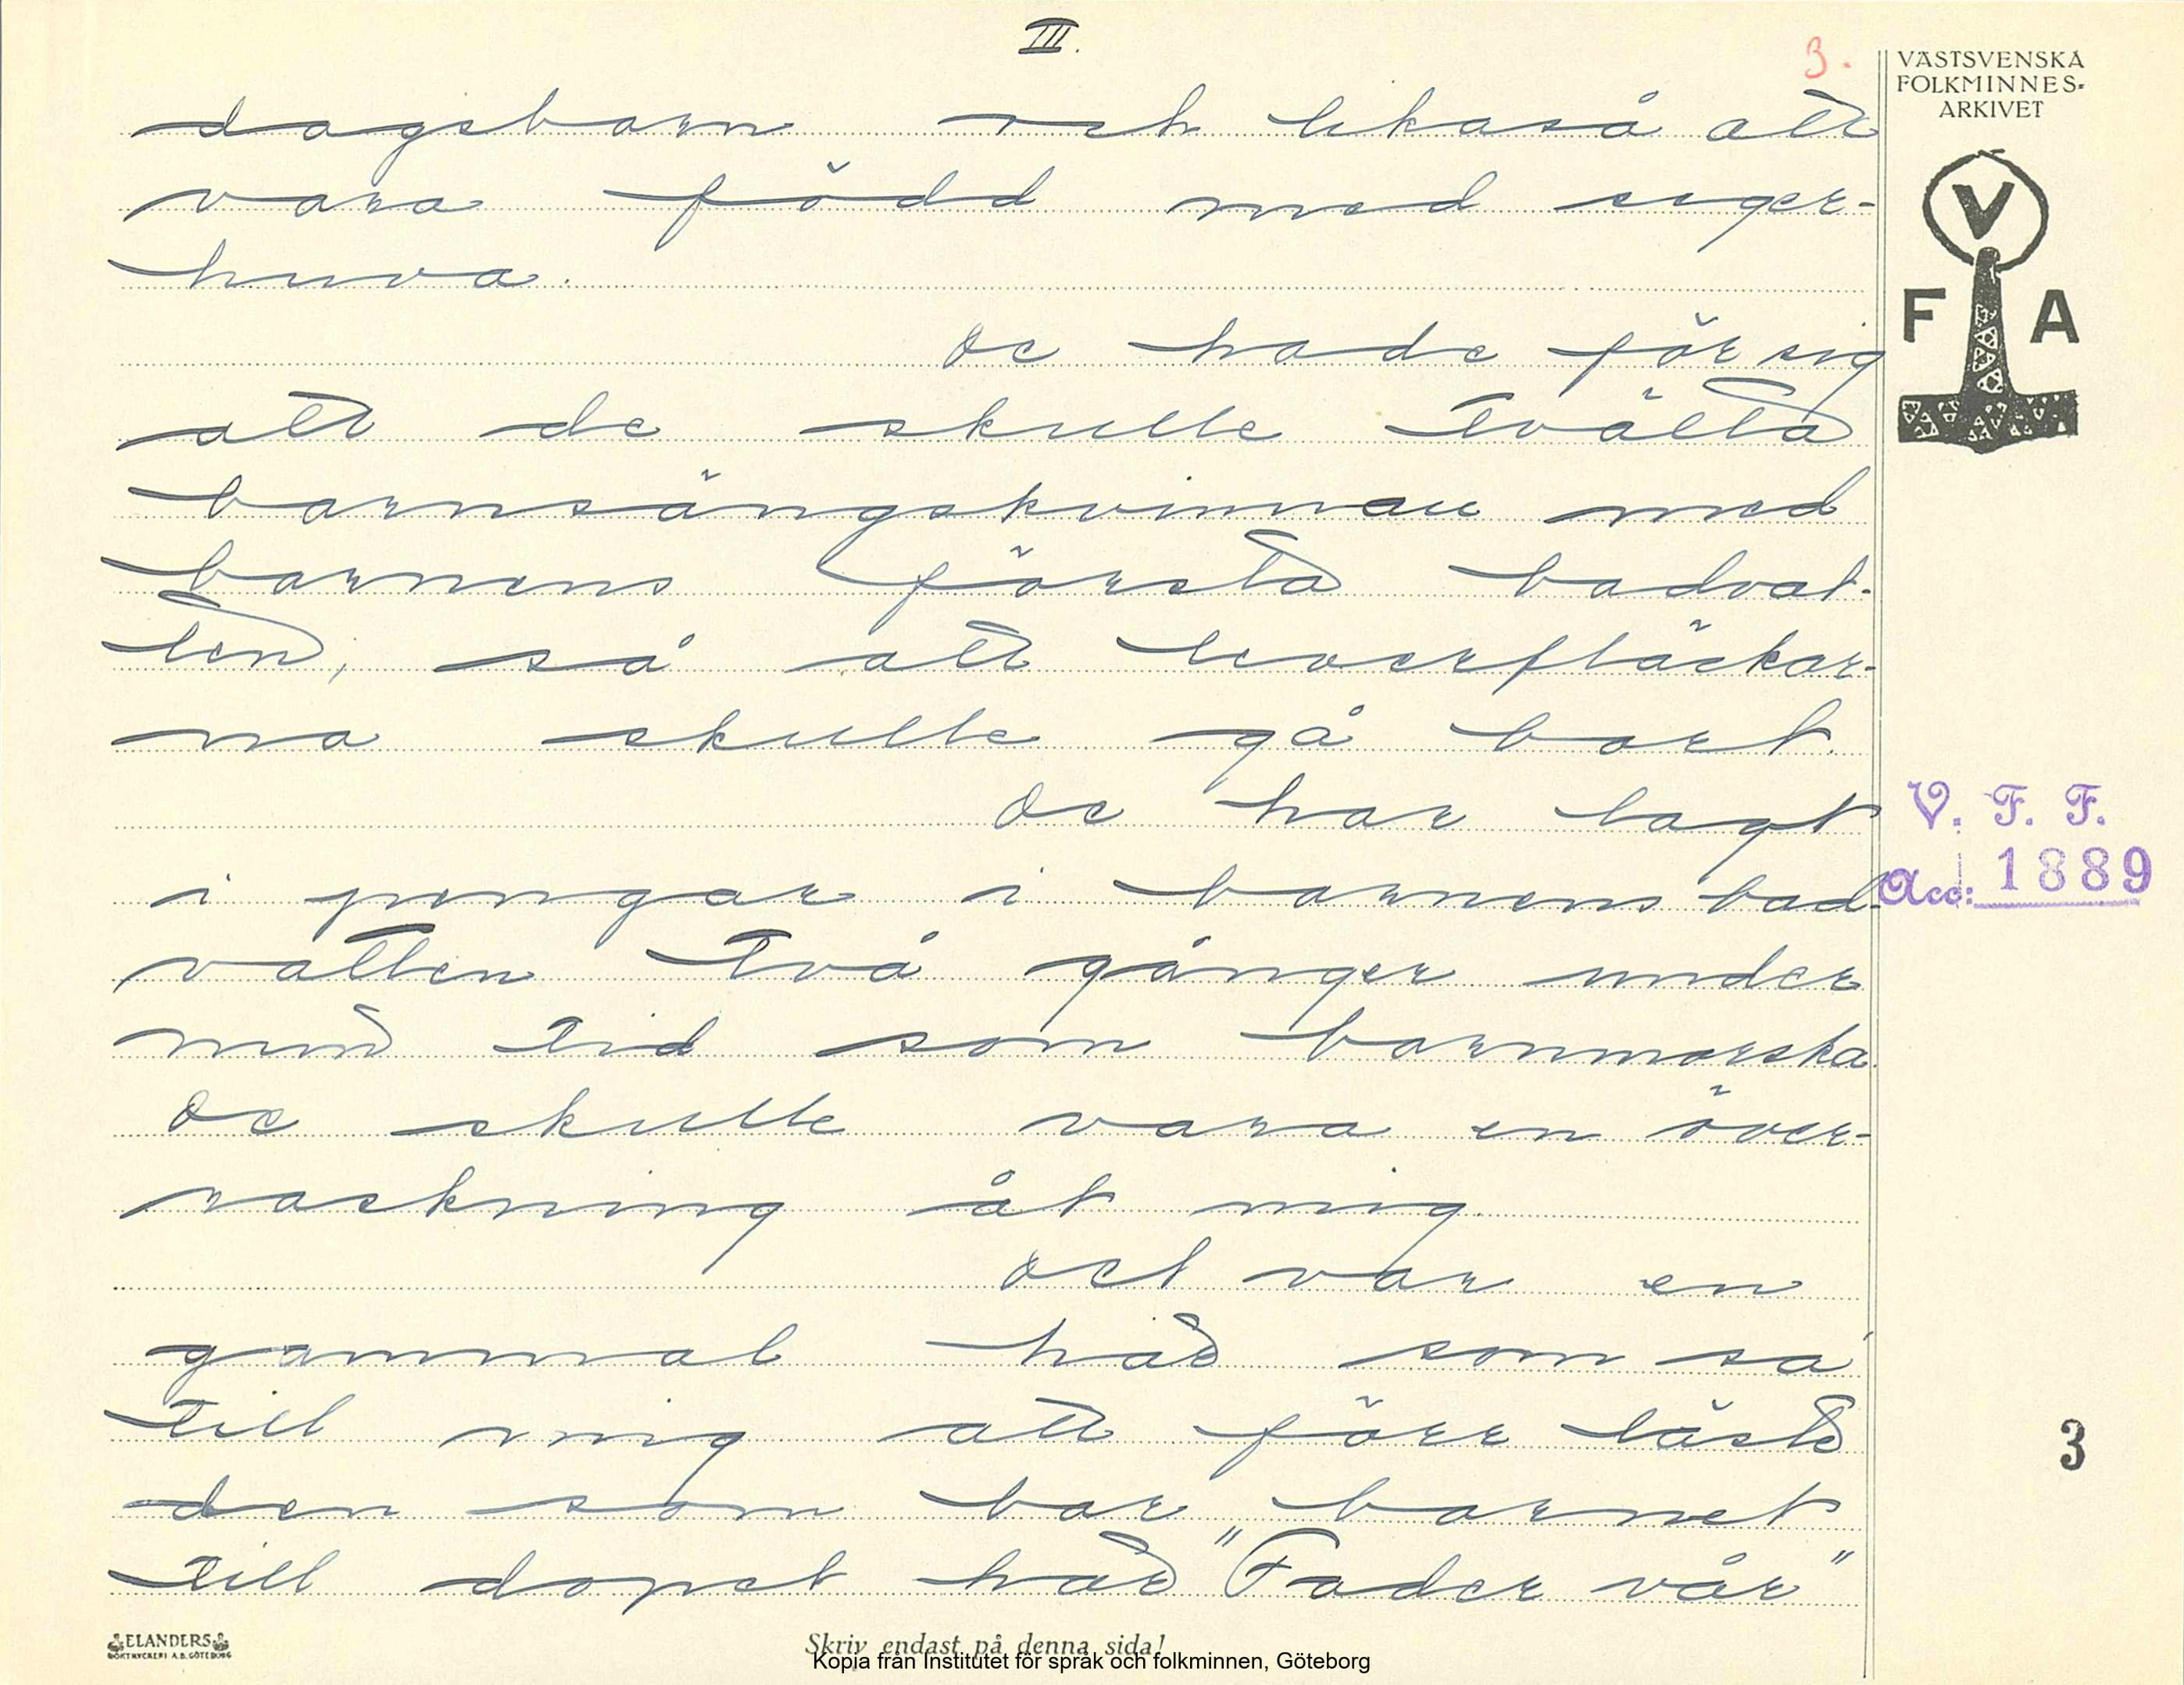 III.
3.
VÄSTSVENSKA
FOLKMINNES-
ARKIVET
V
F A
dagsbarn och likaså att
vara född med seger-
huva.
De hade för sig
att de skulle tvätta
barnsängskvinnan med
barnens första badvat-
ten, så att leverfläckar-
na skulle gå bort.
De har lagt
i pengar i barnens bad-
vatten två gånger under
min tid som barnmorska.
De skulle vara en över-
raskning åt mig.
Det var en
gammal här som sa'
till mig att förr läste
den som bar barnet
till dopet här "Fader vår"
V. F. F.
Acc: 1889
3
ELANDERS
BOKTRYCKERI A.B. GÖTEBORG
Skriv endast på denna sida!
Kopia från Institutet för språk och folkminnen, Göteborg